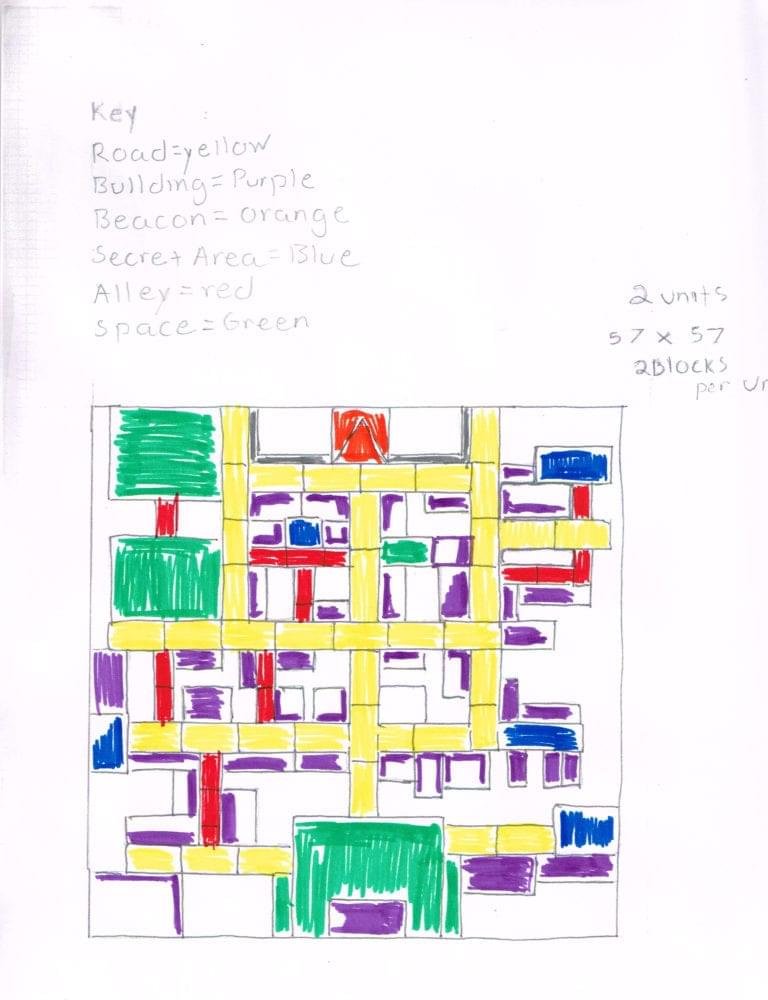 Key
Road=yellow
Building=Purple
Beacon=orange
Secret Area=Blue
Alley=red
Space=Green
2 units
57 x 57
2Blocks
per Un